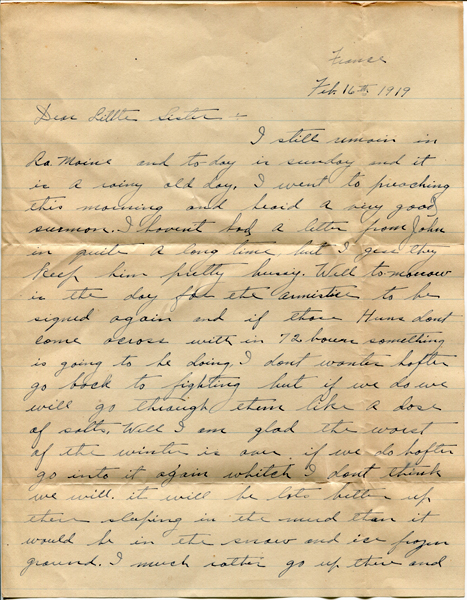 France
Feb. 16th, 1919
Dear Little Sister -
I still remain in
La Maine and to-day is sunday and it
is a rainy old day. I went to preaching
this morning and heard a very good
surmon. I havent had a letter from John
in quite a long time, but I gess they
keep him pretty bussy. Well to-morrow
is the day for the armistise to be
signed again and if those Huns dont
come across with in 72 hours something
is going to be doing. I dont wanter hafter
go back to fighting but if we do we
will go through them like a dose
of salts. Well I am glad the worst
of the winter is over if we do hafter
go into it again whitch I dont think
we will. it will be lots better up
there sleeping in the mud than it
would be in the snow and ice frozen
ground. I much rather go up there and